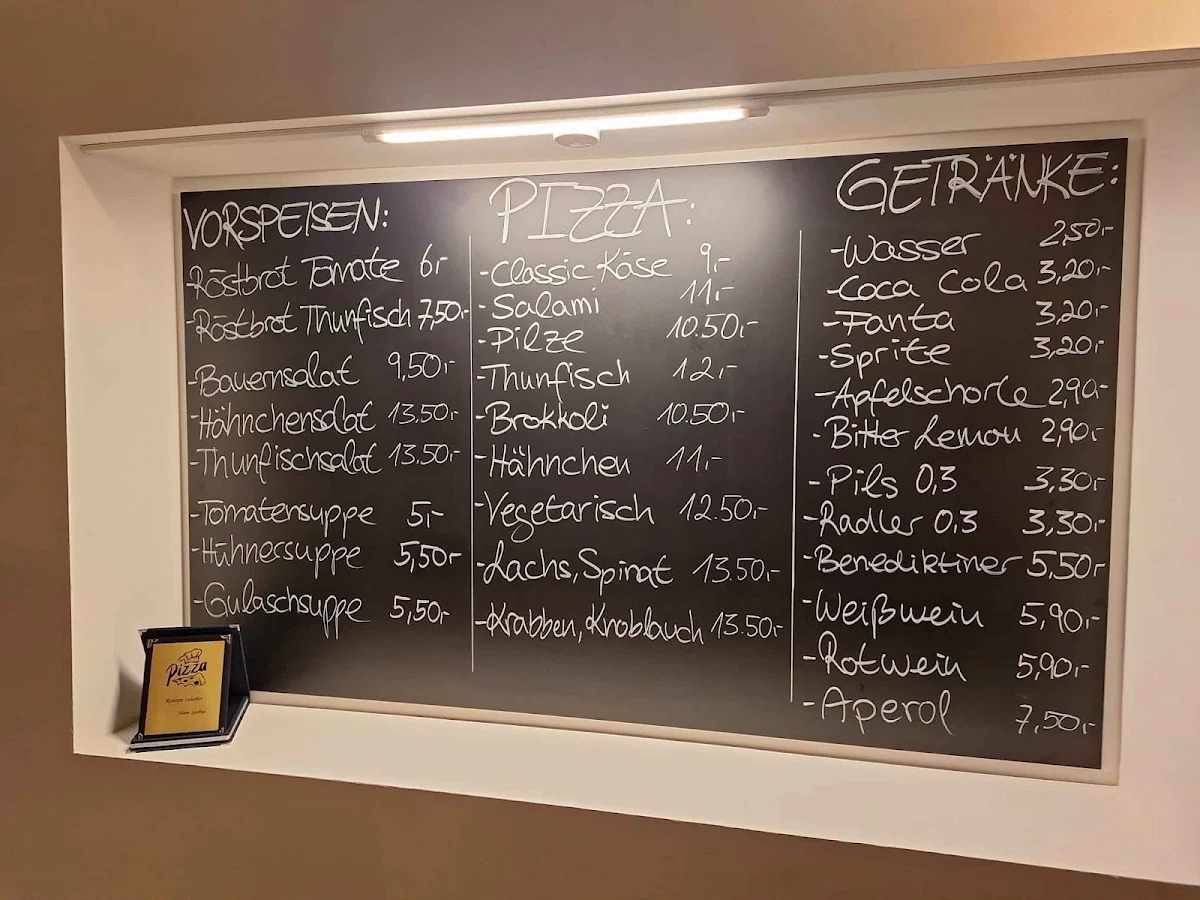 VORSPEISEN:
-Röstbrot Tomate 6,-
-Röstbrot Thunfisch 7,50,-
-Bauernsalat 9,50,-
-Hähnchensalat 13.50,-
-Thunfischsalat 13.50,-
-Tomatensuppe 5,-
-Hühnersuppe 5,50,-
-Gulaschsuppe 5,50,-
PIZZA:
-Classic Käse 9,-
-Salami 11,-
-Pilze 10.50,-
-Thunfisch 12,-
-Brokkoli 10.50,-
-Hähnchen 11,-
-Vegetarisch 12.50,-
-Lachs, Spinat 13.50,-
-Krabben, Knoblauch 13.50,-
GETRÄNKE:
-Wasser 2,50,-
-Coca Cola 3,20,-
-Fanta 3,20,-
-Sprite 3,20,-
-Apfelschorle 2,90,-
-Bitter Lemon 2,90,-
-Pils 0,3 3,30,-
-Radler 0,3 3,30,-
-Benediktiner 5,50,-
-Weißwein 5,90,-
-Rotwein 5,90,-
-Aperol 7,50,-
Pizza